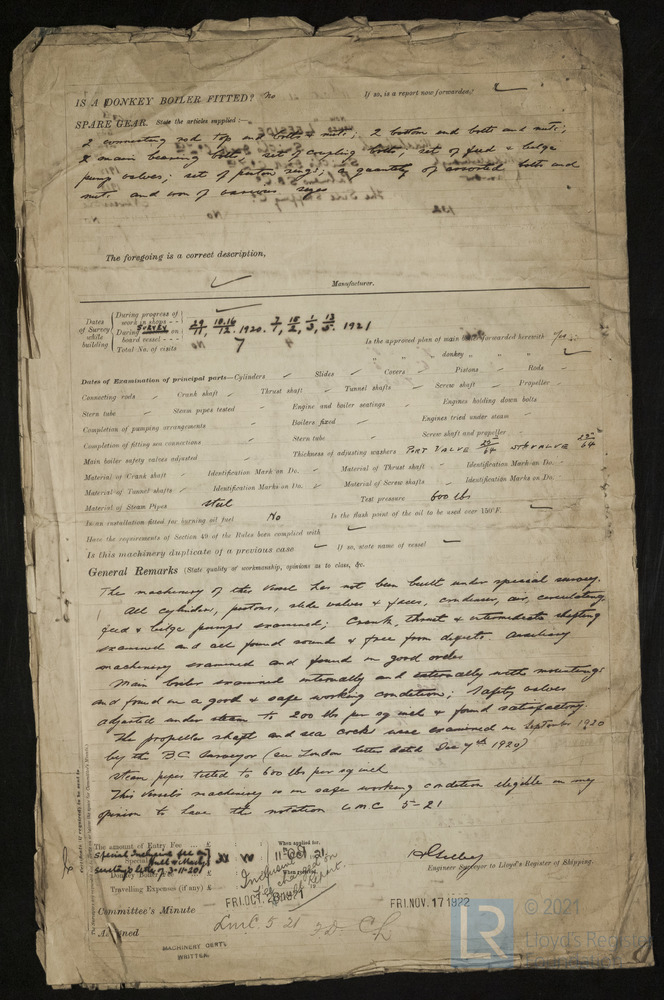 IS A DONKEY BOILER FITTED? No If so, is a report now forwarded?
SPARE GEAR. State the articles supplied:—
2 connecting rod top end bolts & nuts; 2 bottom end bolts and nuts;
2 main bearing bolts set of coupling bolts, set of feed & bilge
pump valves; set of piston rings; a quantity of assorted bolts and
nuts and iron of various sizes
The foregoing is a correct description,
Manufacturer.
Dates of Survey while building
During progress of work in shops - -
During survey on board vessel - - -
Total No. of visits
29/11, 10.16/12, 1920. 7/1, 15/2, 1/3, 13/5. 1921
7
Is the approved plan of main boiler forwarded herewith Yes
" " " donkey " " "
Dates of Examination of principal parts—Cylinders Slides Covers Pistons Rods
Connecting rods Crank shaft Thrust shaft Tunnel shafts Screw shaft Propeller
Stern tube Steam pipes tested Engine and boiler seatings Engines holding down bolts
Completion of pumping arrangements Boilers fixed Engines tried under steam
Completion of fitting sea connections Stern tube Screw shaft and propeller
Main boiler safety valves adjusted Thickness of adjusting washers PORT VALVE 25/64 STB VALVE 25/64
Material of Crank shaft Identification Mark on Do. Material of Thrust shaft Identification Mark on Do.
Material of Tunnel shafts Identification Marks on Do. Material of Screw shafts Identification Marks on Do.
Material of Steam Pipes steel Test pressure 600 lbs
Is an installation fitted for burning oil fuel No Is the flash point of the oil to be used over 150°F.
Have the requirements of Section 49 of the Rules been complied with
Is this machinery duplicate of a previous case If so, state name of vessel
General Remarks (State quality of workmanship, opinions as to class, &c.
The machinery of this vessel has not been built under special survey.
All cylinders, pistons, slide valves & faces, condenser, air, circulating,
feed & bilge pumps examined; Crank, thrust & intermediate shafting
examined and all found sound & free from defects. Auxiliary
machinery examined and found in good order
Main boiler examined internally and externally with mountings
and found in a good & safe working condition; Safety valves
adjusted under steam to 200 lbs per sq inch & found satisfactory.
The propeller shaft and sea cocks were examined in September 1920
by the B.C. Surveyor (see London letter dated Dec 7th 1920)
Steam pipes tested to 600 lbs per sq inch
This Vessel's machinery is in safe working condition eligible in my
opinion to have the notation LMC 5-21
The amount of Entry Fee ... £
Special
Travelling Expenses (if any) £
When applied for,
11 Oct 21
When received,
Inclusive fee charged on Hull Report.
Engineer Surveyor to Lloyd's Register of Shipping.
Committee's Minute FRI. NOV. 17 1922
Assigned LMC 5 21 F.D. CL
MACHINERY CERTE
WRITTEN.
© 2021
LR
Lloyd's Register
Foundation